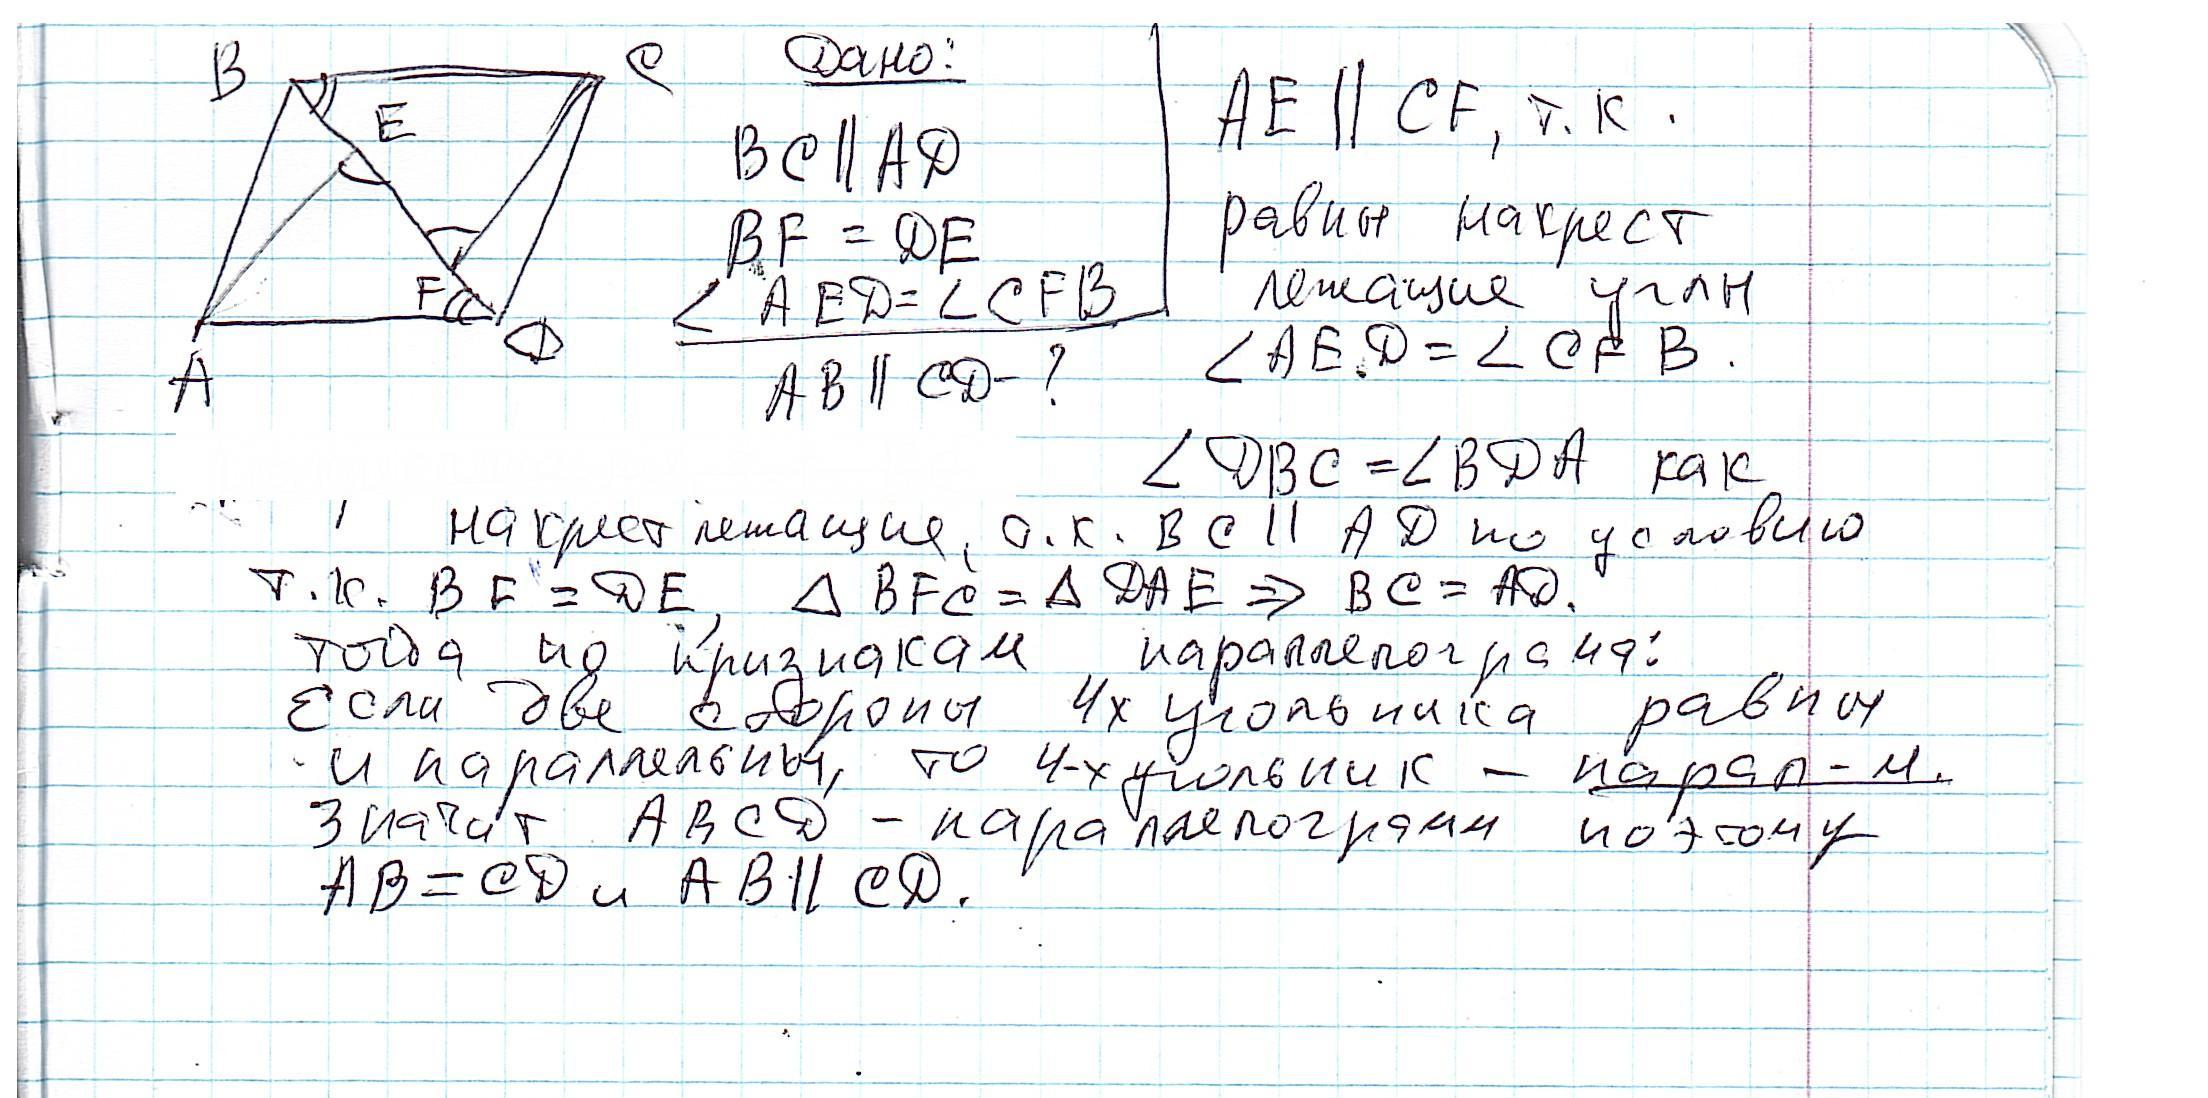 B
C
E
F
A
D
Дано:
BC || AD
BF = DE
∠ AED = ∠ CFB
AB || CD - ?
AE || CF, т.к.
равны накрест
лежащие углы
∠AED = ∠CFB.
∠DBC = ∠BDA как
накрест лежащие, т.к. BC || AD по условию
т.к. BF = DE, △ BFC = △ DAE ⇒ BC = AD.
тогда по признакам параллелограма:
Если две стороны 4х угольника равны
и параллельны, то 4-х угольник - парал-м.
Значит ABCD - параллелограмм поэтому
AB = CD и AB || CD.